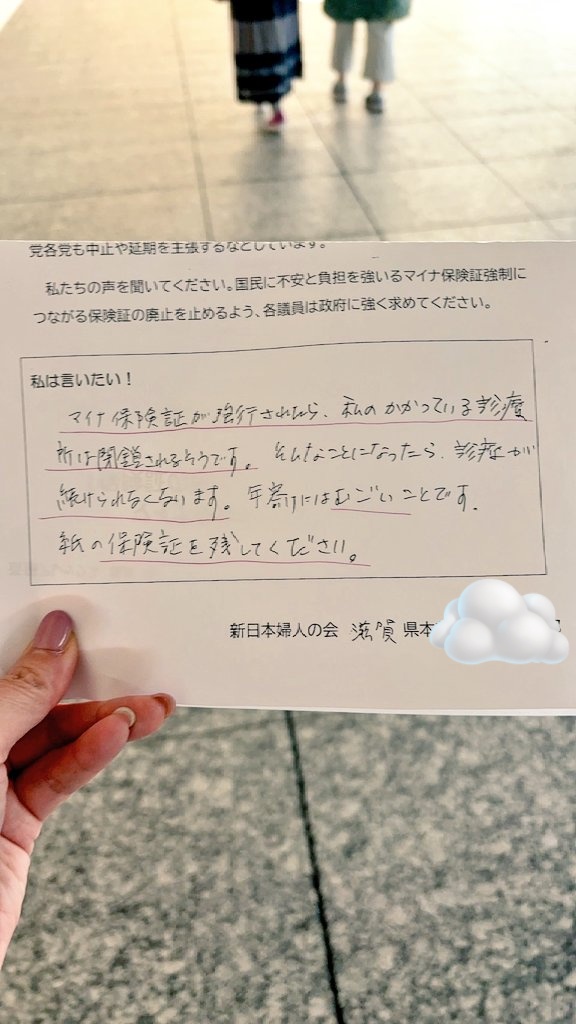 党各党も中止や延期を主張するなどしています。
私たちの声を聞いてください。国民に不安と負担を強いるマイナ保険証強制に
つながる保険証の廃止を止めるよう、各議員は政府に強く求めてください。
私は言いたい！
マイナ保険証が強行されたら、私のかかっている診療
所は閉鎖されるそうです。そんなことになったら、診療が
続けられなくなります。年寄りにはむごいことです。
紙の保険証を残してください。
新日本婦人の会 滋賀 県本